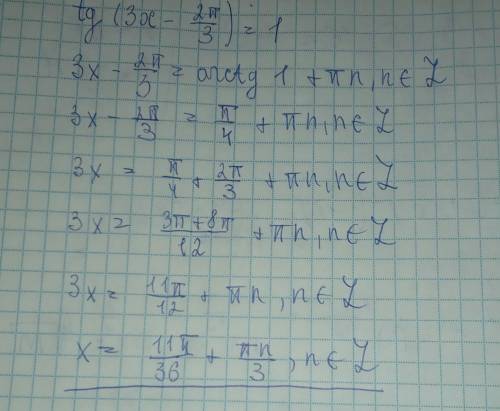 tg (3x - 2π/3) = 1
3x - 2π/3 = arctg 1 + πn, n ∈ Z
3x - 2π/3 = π/4 + πn, n ∈ Z
3x = π/4 + 2π/3 + πn, n ∈ Z
3x = 3π+8π/12 + πn, n ∈ Z
3x = 11π/12 + πn, n ∈ Z
x = 11π/36 + πn/3, n ∈ Z